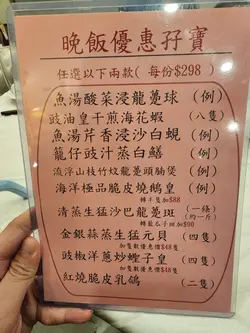 晚飯優惠孖寶
任選以下兩款(每份$298)
魚湯酸菜浸龍躉球 (例)
豉油皇干煎海花蝦 (八隻)
魚湯芹香浸沙白蜆 (例)
籠仔豉汁蒸白鱔 (例)
流浮山枝竹炆龍躉頭腩煲 (例)
海洋極品脆皮燒鵝皇 (例)
轉半隻加$88
清蒸生猛沙巴龍躉斑 (一條)
(約一斤)
加$90
金銀蒜蒸生猛元貝 (四隻)
加隻數優惠價$48隻
豉椒洋蔥炒蟶子皇 (四隻)
加隻數優惠價$48隻
紅燒脆皮乳鴿 (二隻)